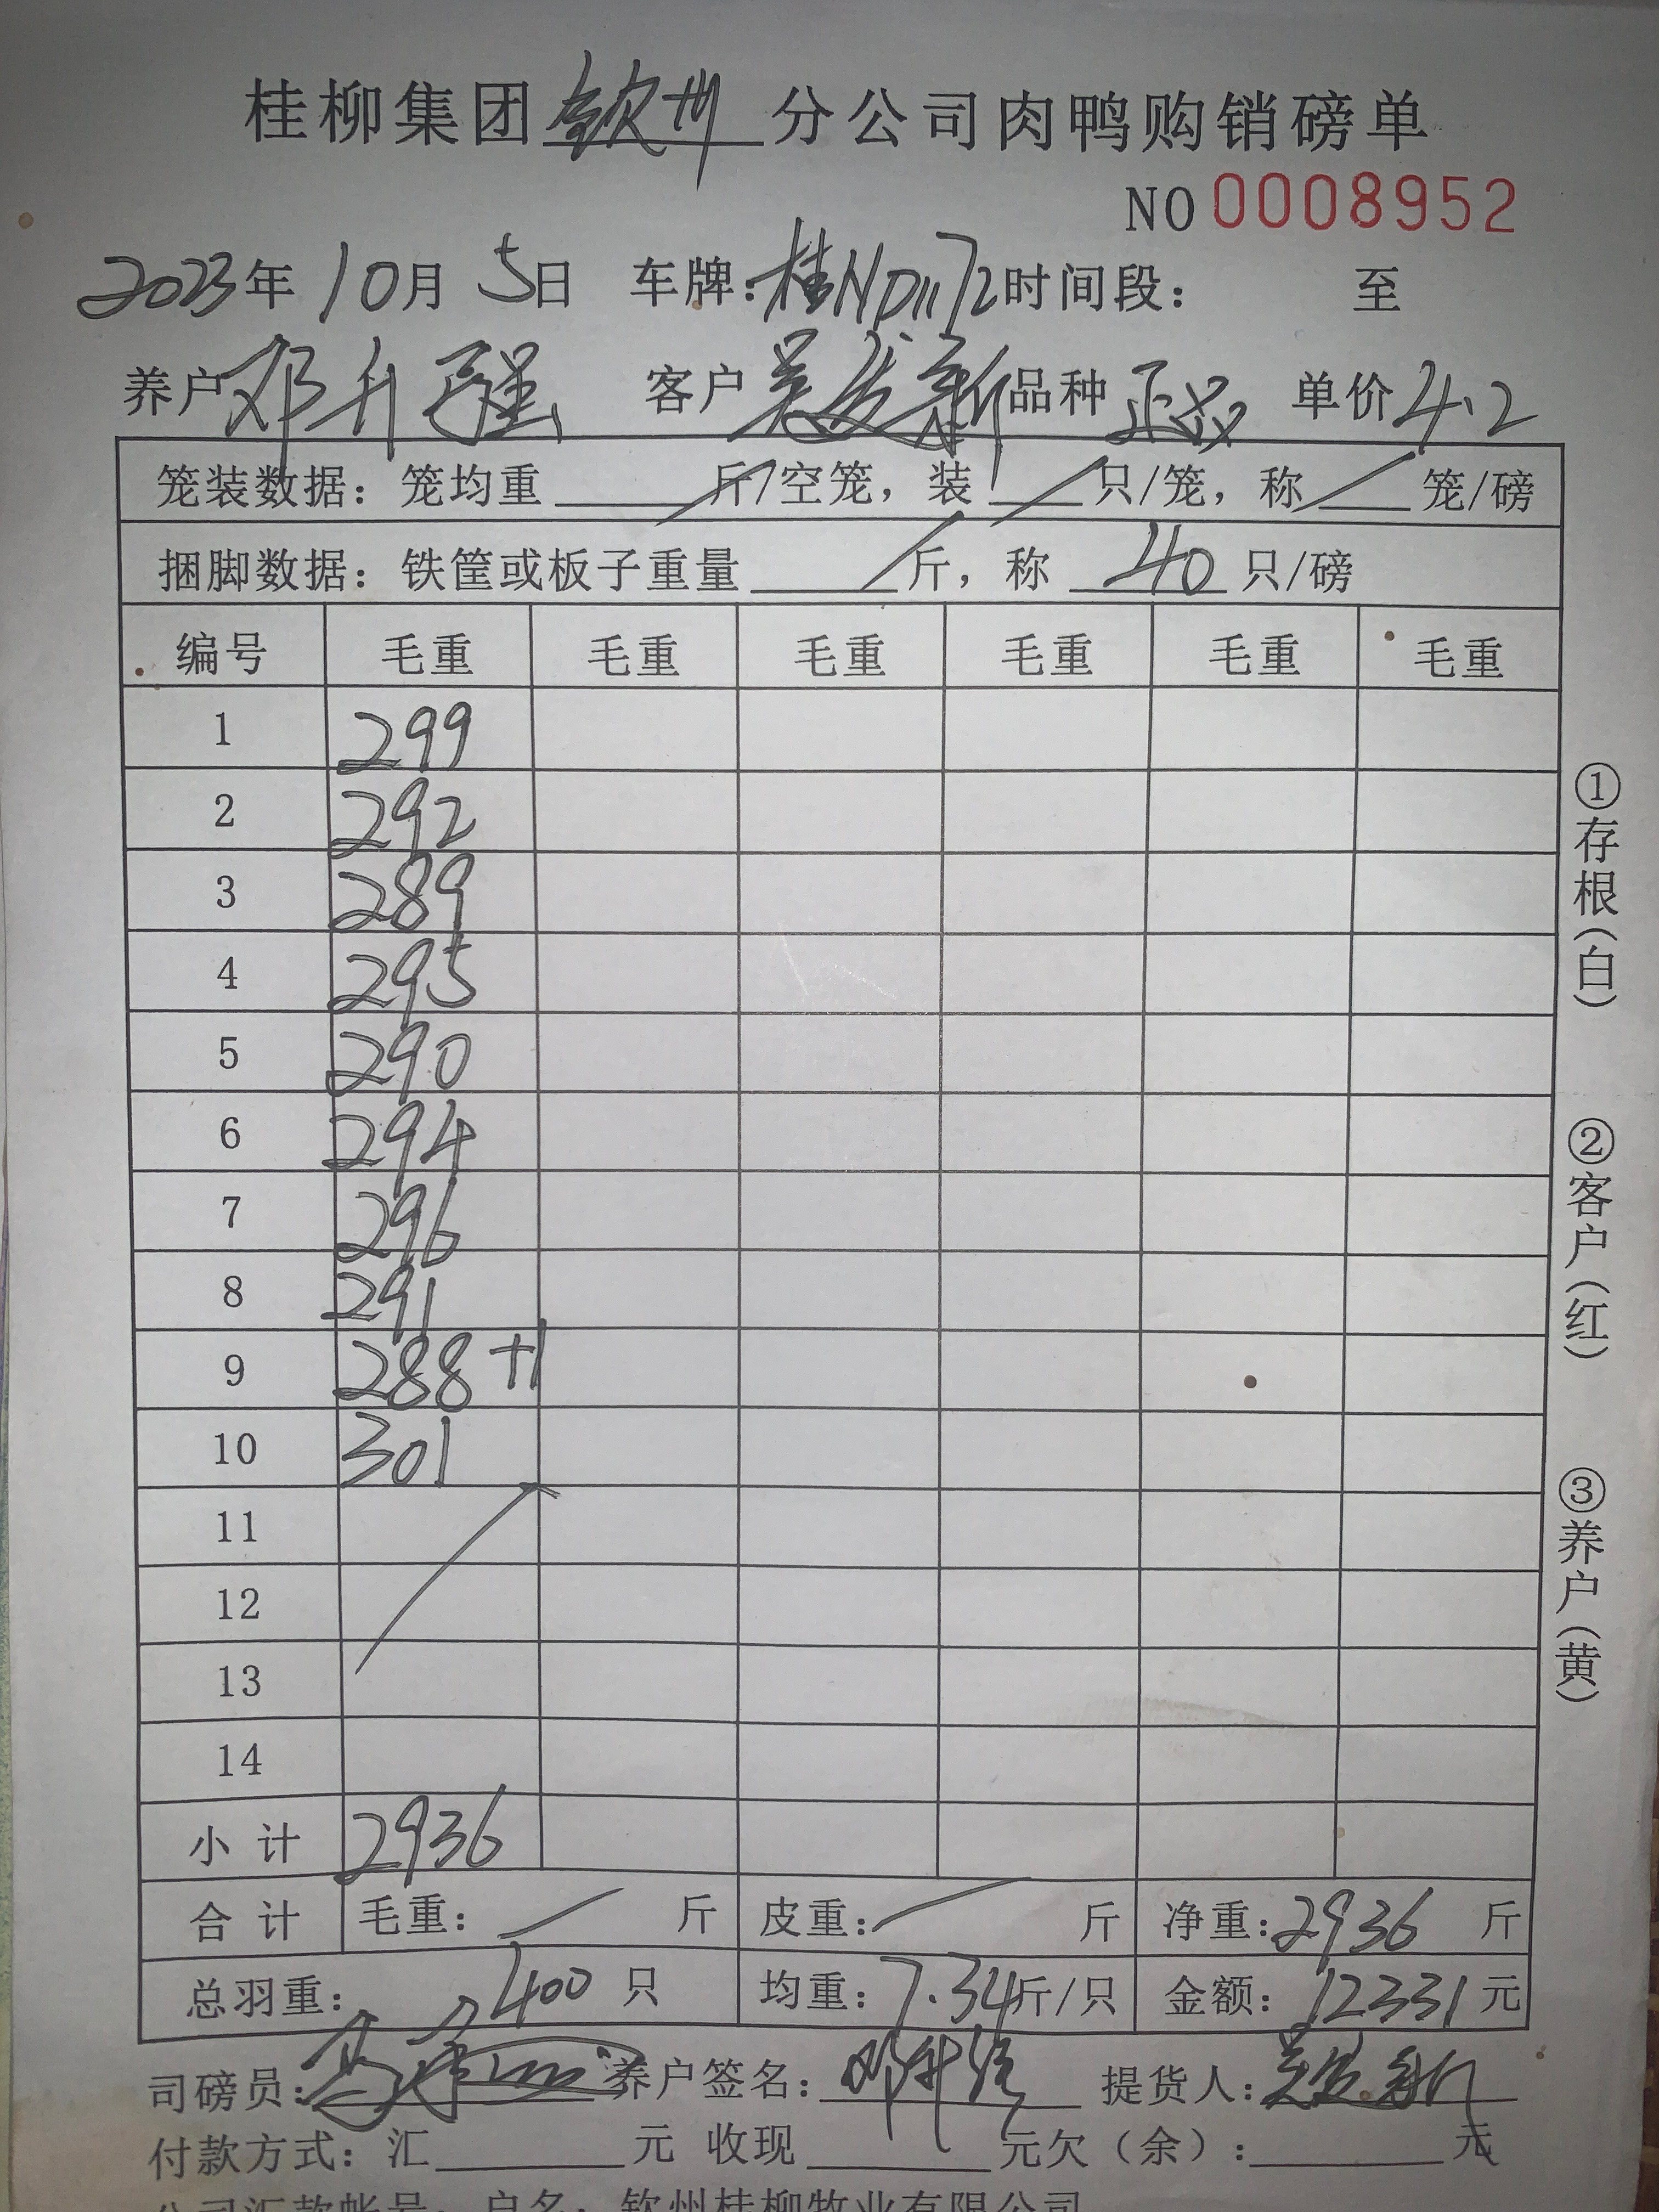 桂柳集团钦州分公司肉鸭购销磅单
NO 0008952
2023年 10月 5日 车牌:桂ND1172 时间段: 至
养户 邓升强 客户 吴发新 品种 单价 4.2
笼装数据: 笼均重 斤/空笼, 装 / 只/笼, 称 / 笼/磅
捆脚数据: 铁筐或板子重量 / 斤, 称 40 只/磅
编号 毛重 毛重 毛重 毛重 毛重 毛重
1 299
2 292
3 289
4 295
5 290
6 294
7 296
8 291
9 288 +1
10 301
11
12
13
14
小计 2936
合计 毛重: / 斤 皮重: / 斤 净重: 2936 斤
总羽重: 400 只 均重: 7.34 斤/只 金额: 12331 元
司磅员: 养户签名: 邓升强 提货人: 吴发新
付款方式: 汇 元 收现 元欠(余): 元
公司汇款帐号: 户名: 钦州桂柳牧业有限公司
①存根(白)
②客户(红)
③养户(黄)